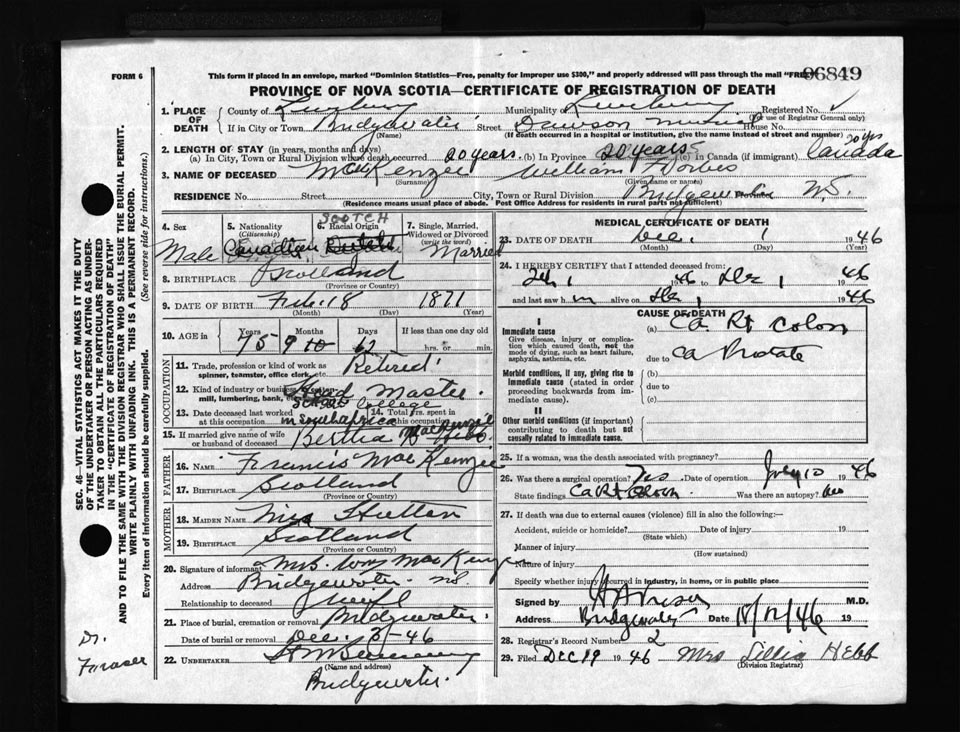 FORM 6
This form if placed in an envelope, marked "Dominion Statistics—Free, penalty for improper use $300," and properly addressed will pass through the mail "FREE
06849
PROVINCE OF NOVA SCOTIA—CERTIFICATE OF REGISTRATION OF DEATH
1. PLACE OF DEATH
County of Lunenburg Municipality of Lunenburg Registered No.
(For use of Registrar General only)
If in City or Town Bridgewater Street Dawson Memorial House No.
(Name) (If death occurred in a hospital or institution, give the name instead of street and number)
2. LENGTH OF STAY (in years, months and days) 20 yrs
(a) In City, Town or Rural Division where death occurred 20 years. (b) In Province 20 years (c) In Canada (if immigrant) Canada
3. NAME OF DECEASED MacKenzie William Forbes
(Surname) (Given name or names)
RESIDENCE No. Street City, Town or Rural Division Bridgewater Province N.S.
(Residence means usual place of abode. Post Office Address for residents in rural parts not sufficient)
4. Sex Male
5. Nationality (Citizenship) Canadian
6. Racial Origin SCOTCH
7. Single, Married, Widowed or Divorced (write the word) Married
8. BIRTHPLACE Scotland
(Province or Country)
9. DATE OF BIRTH Feb. 18 1871
(Month) (Day) (Year)
10. AGE in Years Months Days If less than one day old
75 9 10 12 hrs. or min.
OCCUPATION
11. Trade, profession or kind of work as spinner, teamster, office clerk, etc. Retired
12. Kind of industry or business, as saw-mill, lumbering, bank, etc. Head Master
College
13. Date deceased last worked at this occupation in South Africa
14. Total yrs. spent in this occupation
15. If married give name of wife or husband of deceased Bertha B Hebb MacKenzie
FATHER
16. NAME Francis MacKenzie
17. BIRTHPLACE Scotland
(Province or Country)
MOTHER
18. MAIDEN NAME Miss Hutton
19. BIRTHPLACE Scotland
(Province or Country)
20. Signature of informant Mrs. Wm MacKenzie
Address Bridgewater. N.S.
Relationship to deceased Wife
21. Place of burial, cremation or removal Bridgewater.
Date of burial or removal Dec. 3-46
22. UNDERTAKER
(Name and address)
Bridgewater.
MEDICAL CERTIFICATE OF DEATH
23. DATE OF DEATH Dec. 1 1946
(Month) (Day) (Year)
24. I HEREBY CERTIFY that I attended deceased from:
Feb 1 1946 to Dec 1 1946
and last saw h im alive on Dec 1 1946
CAUSE OF DEATH
I
Immediate cause
Give disease, injury or complication which caused death, not the mode of dying, such as heart failure, asphyxia, asthenia, etc.
(a) Ca Rt Colon
due to Ca Prostate
Morbid conditions, if any, giving rise to immediate cause (stated in order proceeding backwards from immediate cause).
(b)
due to
(c)
II
Other morbid conditions (if important) contributing to death but not causally related to immediate cause.
25. If a woman, was the death associated with pregnancy?
26. Was there a surgical operation? Yes Date of operation July 10 1946
State findings Ca Rt Colon. Was there an autopsy?
27. If death was due to external causes (violence) fill in also the following:—
Accident, suicide or homicide? Date of injury 19
(State which)
Manner of injury
(How sustained)
Nature of injury
Specify whether injury occurred in industry, in home, or in public place
Signed by M.D.
Address Bridgewater Date 18/12/46 19
28. Registrar's Record Number 2
29. Filed DEC 19 1946 Mrs Lillia Hebb
(Division Registrar)
SEC. 46—VITAL STATISTICS ACT MAKES IT THE DUTY OF THE UNDERTAKER OR PERSON ACTING AS UNDERTAKER TO OBTAIN ALL THE PARTICULARS REQUIRED IN THE "CERTIFICATE OF REGISTRATION OF DEATH" AND TO FILE THE SAME WITH THE DIVISION REGISTRAR WHO SHALL ISSUE THE BURIAL PERMIT.
WRITE PLAINLY WITH UNFADING INK. THIS IS A PERMANENT RECORD.
Every item of information should be carefully supplied. (See reverse side for instructions.)
Dr.
Fraser